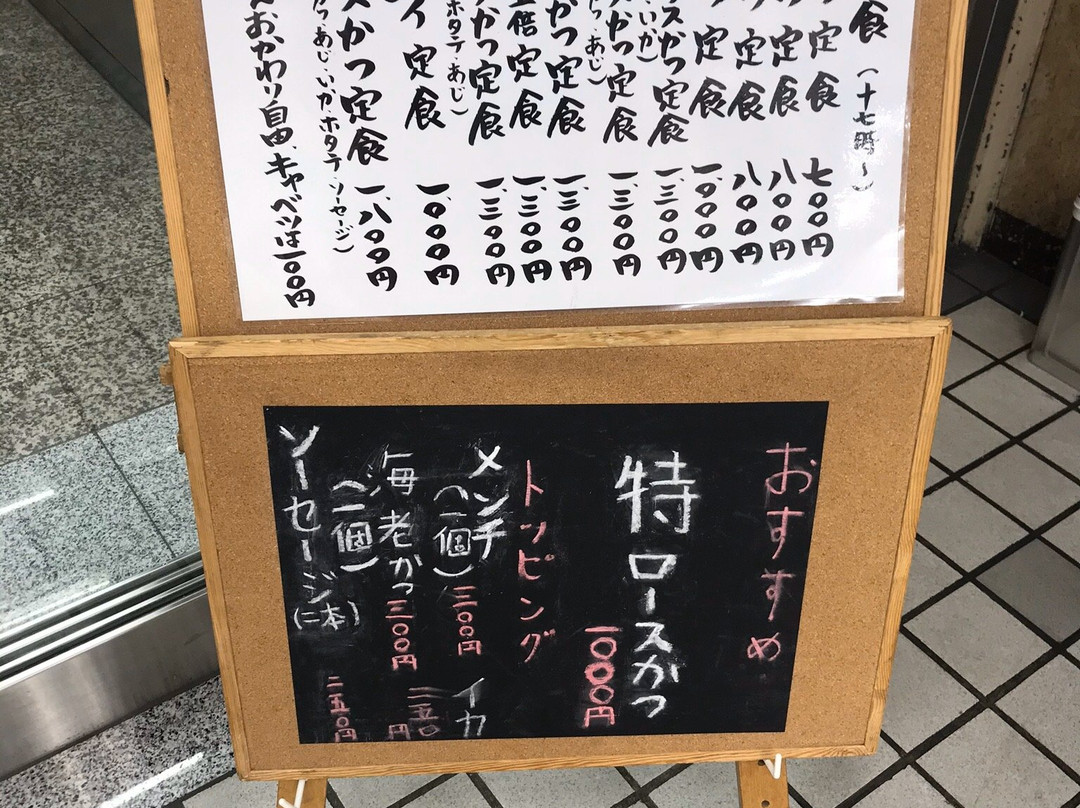 食(十七時〜)
定食 七〇〇円
定食 八〇〇円
定食 八〇〇円
定食 一、〇〇〇円
スかつ定食 一、三〇〇円
いか)
かつ定食 一、三〇〇円
・あじ)
かつ定食 一、三〇〇円
倍定食 一、三〇〇円
かつ定食 一、三〇〇円
ホタテ・あじ)
イ定食 一、〇〇〇円
スかつ定食 一、八〇〇円
あじ・いか・ホタテ・ソーセージ)
おかわり自由、キャベツは一〇〇円
おすすめ
特ロースかつ
一〇〇〇円
トッピング
メンチ
(一個) 三〇〇円
イカ 二五〇円
海老かつ
(一個) 三〇〇円
ソーセージ
(二本) 二五〇円